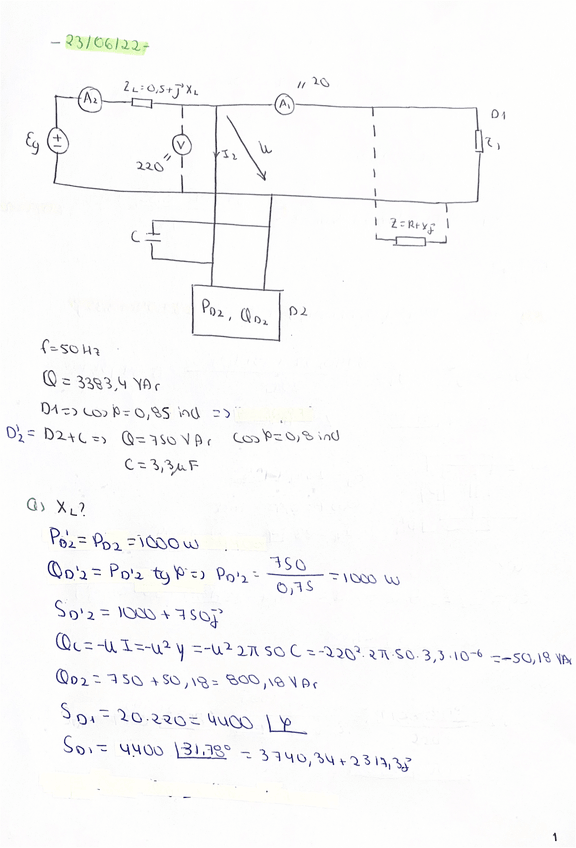 - 23/06/22 -
A2
ZL=0,5+jXL
A1
" 20
D1
Eg
+
-
V
220"
I2
u
Z1
C
Z=R+Xj
PD2, QD2
D2
f=50Hz
Q = 3383,4 VAr
D1=> cosφ=0,85 ind =>
D2'= D2+C => Q=750 VAr cosφ=0,8 ind
C=3,3μF
a) XL?
PD2'= PD2 =1000w
QD'2 = PD'2 tgφ=> PD'2 = 750/0,75 =1000 w
SD'2 = 1000 + 750j
Qc=-uI=-u²y=-u²2π50C=-220².2π.50.3,3.10⁻⁶=-50,18 VAr
QD2= 750 +50,18= 800,18 VAr
SD1 = 20.220= 4400 |φ
SD1 = 4400 |31,78° = 3740,34+2317,3j
1